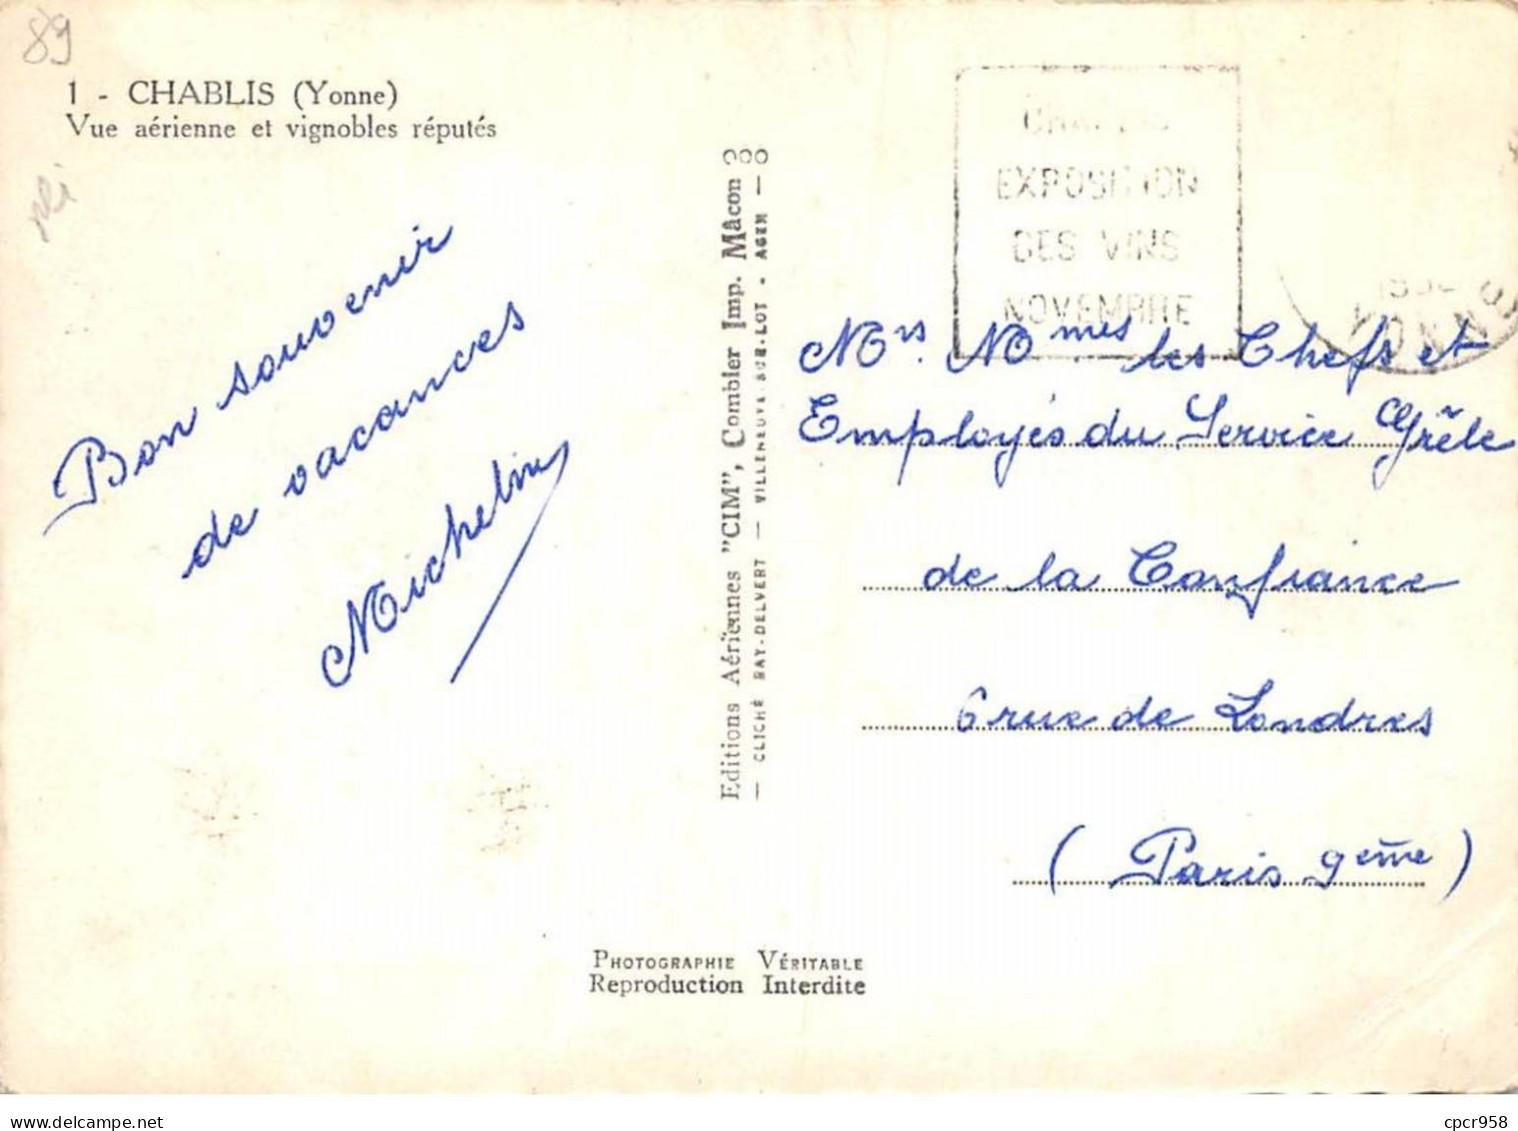 89
1 - CHABLIS (Yonne)
Vue aérienne et vignobles réputés
pli
Bon souvenir
de vacances
Micheline
Editions Aériennes "CIM", Combier Imp. Mâcon
— CLICHÉ RAY-DELVERT — VILLENEUVE-SUR-LOT - AGEN —
CHABLIS
EXPOSITION
DES VINS
NOVEMBRE
YONNE
Mrs. Mmes les Chefs et
Employés du Service Grêle
de la Confiance
6 rue de Londres
(Paris 9ème)
PHOTOGRAPHIE VÉRITABLE
Reproduction Interdite
cpcr958